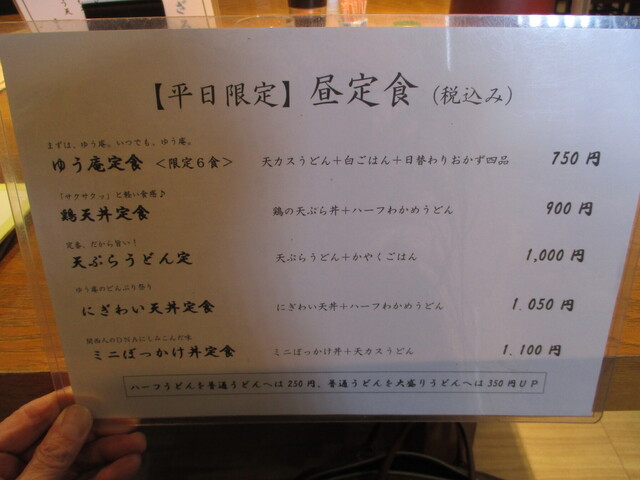 【平日限定】昼定食（税込み）
まずは、ゆう庵。いつでも、ゆう庵。
ゆう庵定食 ＜限定６食＞ 天カスうどん＋白ごはん＋日替わりおかず四品 750円
「サクサクッ」と軽い食感♪
鶏天丼定食 鶏の天ぷら丼＋ハーフわかめうどん 900円
定番、だから旨い！
天ぷらうどん定 天ぷらうどん＋かやくごはん 1,000円
ゆう庵のどんぶり祭り
にぎわい天丼定食 にぎわい天丼＋ハーフわかめうどん 1.050円
人のＤＮＡにしみこんだ味
ミニぼっかけ丼定食 ミニぼっかけ丼＋天カスうどん 1.100円
ハーフうどんを普通うどんへは250円、普通うどんを大盛りうどんへは350円ＵＰ